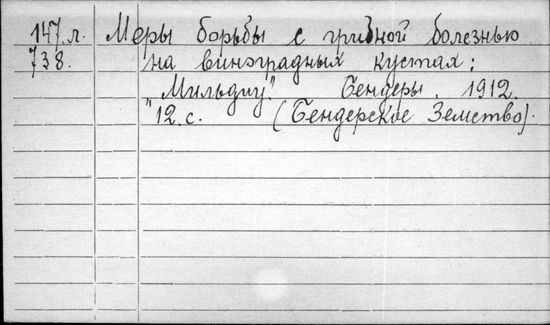 147.л. Меры борьбы с грибной болезнью
738. на виноградных кустах:
"Мильдиу". Бендеры. 1912.
12.с. (Бендерское Земство).